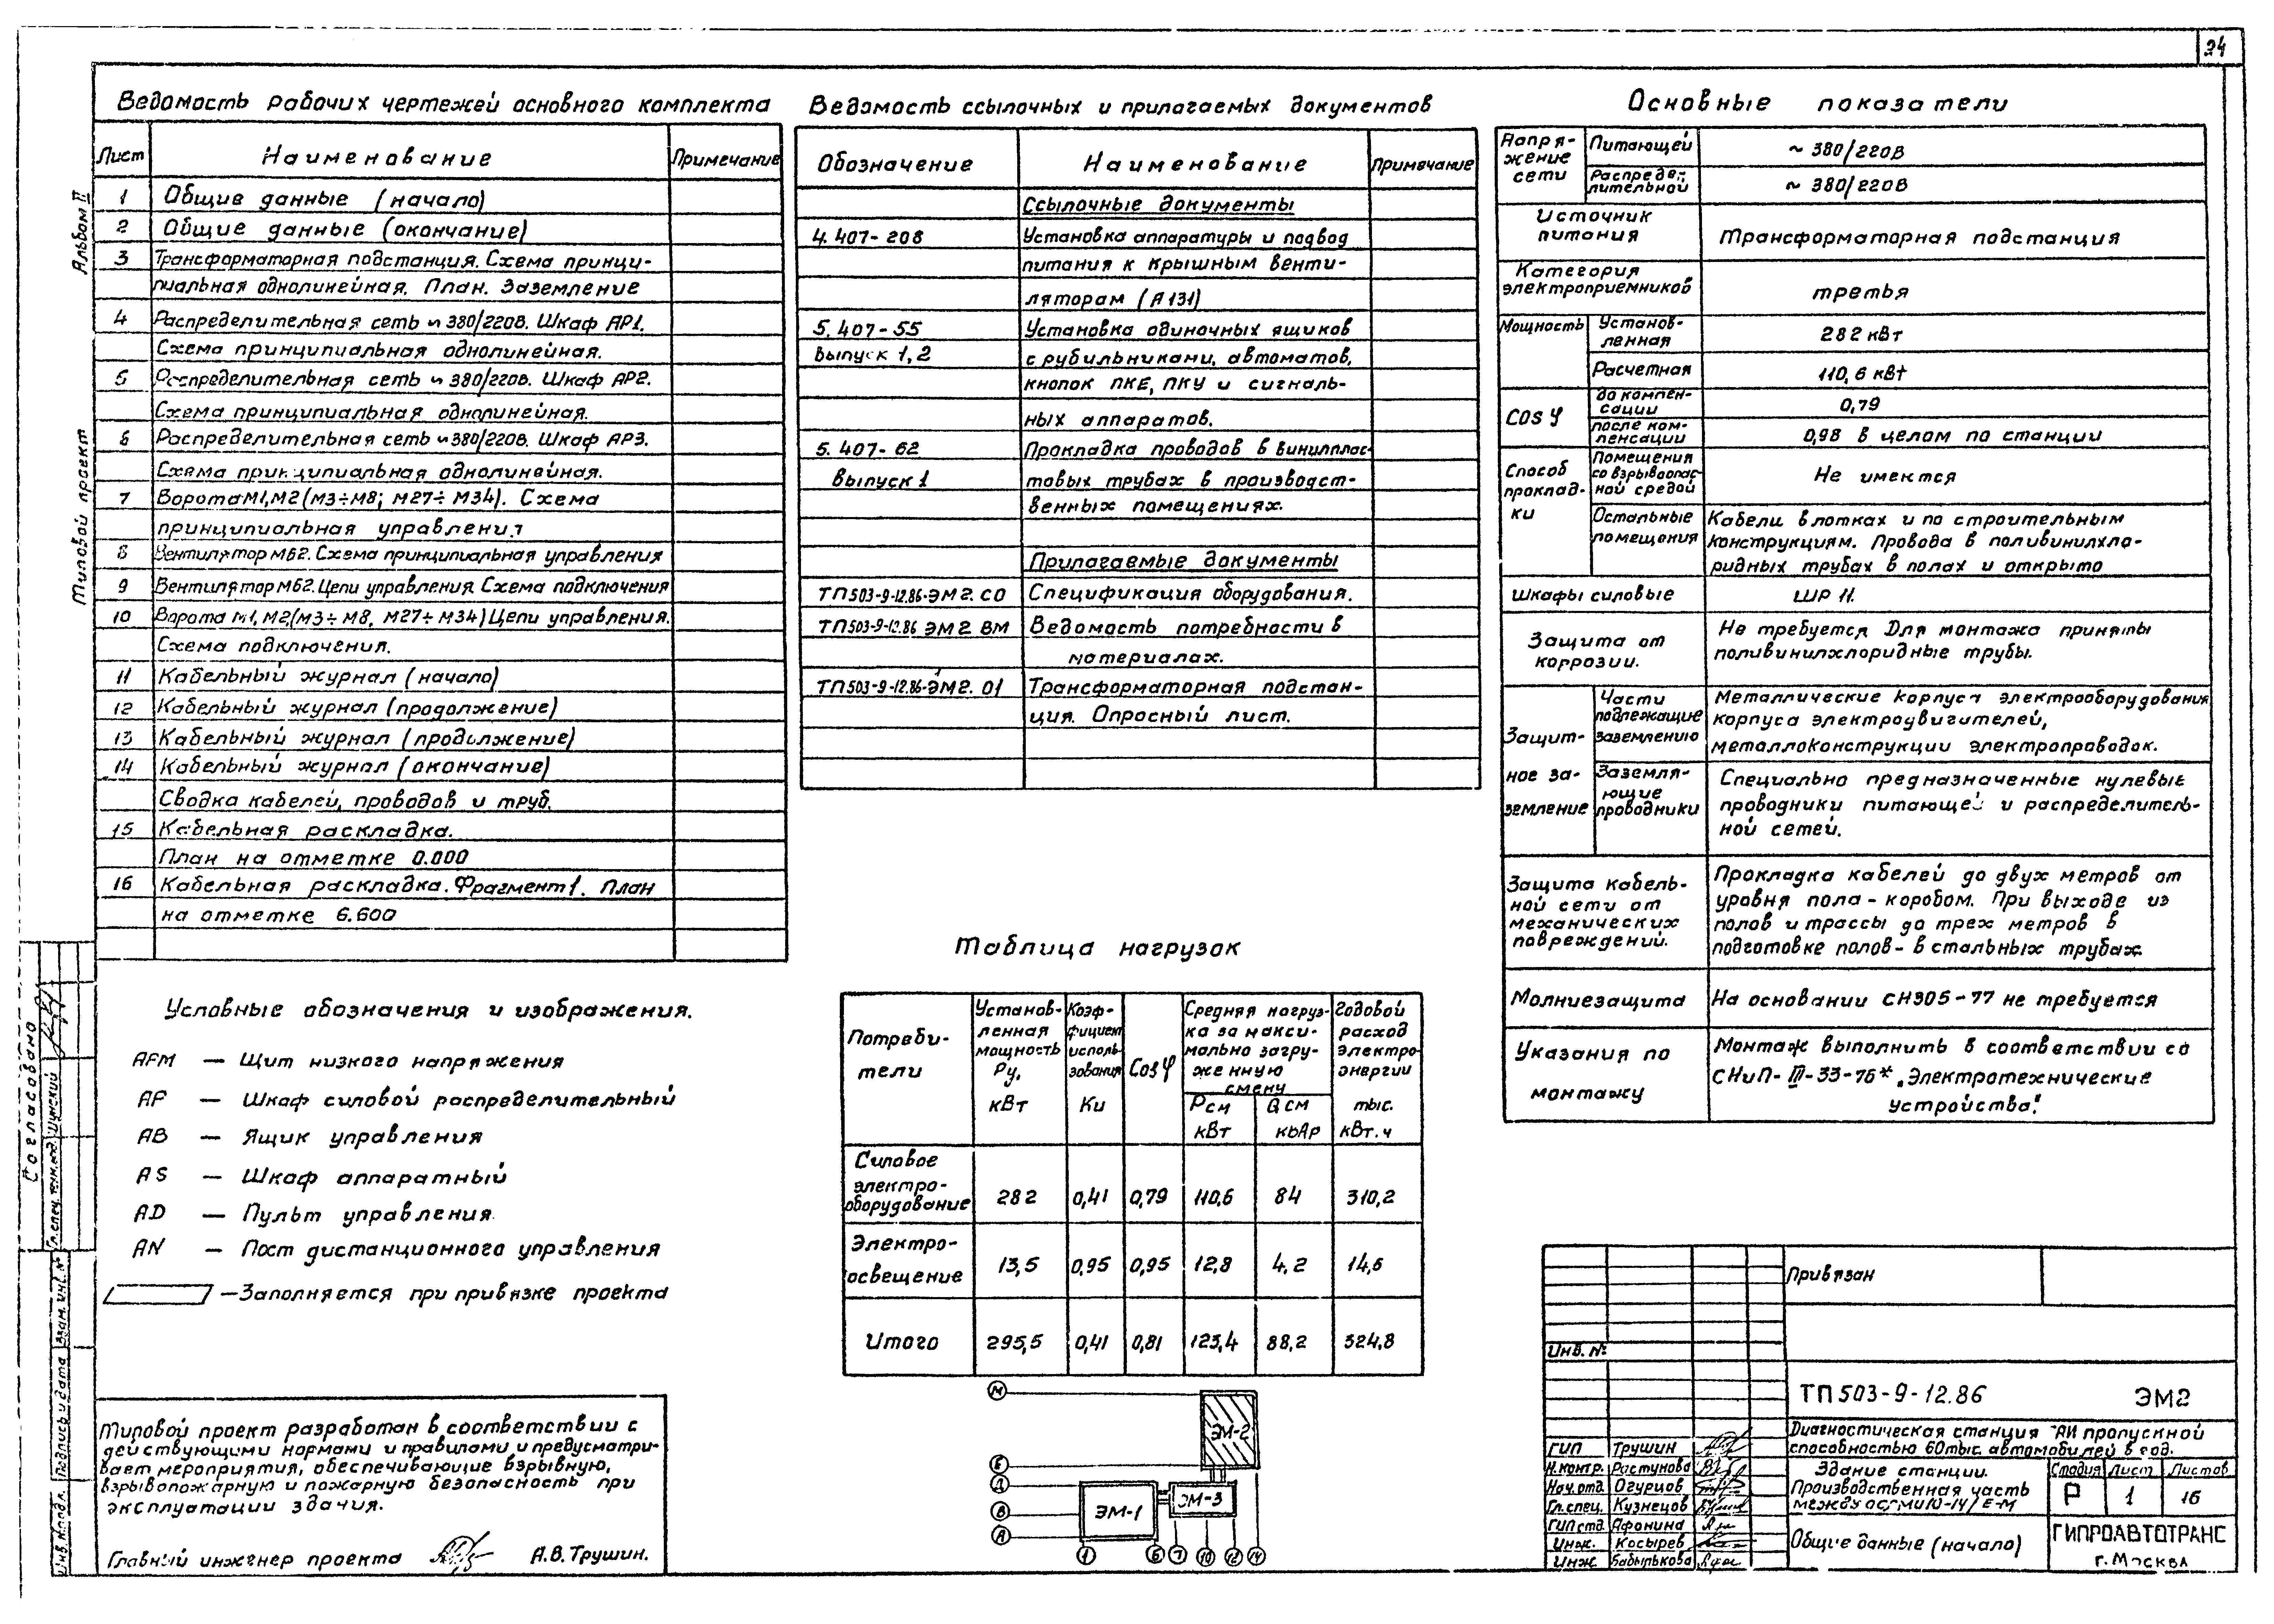 24
Альбом II
Типовой проект
Ведомость рабочих чертежей основного комплекта
Лист Наименование Примечание
1 Общие данные (начало)
2 Общие данные (окончание)
3 Трансформаторная подстанция. Схема принци-
пиальная однолинейная. План. Заземление
4 Распределительная сеть ~ 380/220В. Шкаф АР1.
Схема принципиальная однолинейная.
5 Распределительная сеть ~ 380/220В. Шкаф АР2.
Схема принципиальная однолинейная.
6 Распределительная сеть ~ 380/220В. Шкаф АР3.
Схема принципиальная однолинейная.
7 Ворота М1, М2 (М3÷М8; М27÷М34). Схема
принципиальная управления
8 Вентилятор М62. Схема принципиальная управления
9 Вентилятор М62. Цепи управления. Схема подключения
10 Ворота М1, М2 (М3÷М8, М27÷М34) Цепи управления.
Схема подключения.
11 Кабельный журнал (начало)
12 Кабельный журнал (продолжение)
13 Кабельный журнал (продолжение)
14 Кабельный журнал (окончание)
Сводка кабелей, проводов и труб.
15 Кабельная раскладка.
План на отметке 0.000
16 Кабельная раскладка. Фрагмент 1. План
на отметке 6.600
Условные обозначения и изображения.
АFМ — Щит низкого напряжения
АР — Шкаф силовой распределительный
АВ — Ящик управления
АS — Шкаф аппаратный
АD — Пульт управления
АN — Пост дистанционного управления
— Заполняется при привязке проекта
Типовой проект разработан в соответствии с
действующими нормами и правилами и предусматри-
вает мероприятия, обеспечивающие взрывную,
взрывопожарную и пожарную безопасность при
эксплуатации здания.
Главный инженер проекта А.В. Трушин.
Ведомость ссылочных и прилагаемых документов
Обозначение Наименование Примечание
Ссылочные документы
4.407-208 Установка аппаратуры и подвод
питания к крышным венти-
ляторам (А131)
5.407-55 Установка одиночных ящиков
выпуск 1,2 с рубильниками, автоматов,
кнопок ПКЕ, ПКУ и сигналь-
ных аппаратов.
5.407-62 Прокладка проводов в винилплас-
выпуск 1 товых трубах в производст-
венных помещениях.
Прилагаемые документы
ТП503-9-12.86-ЭМ2.СО Спецификация оборудования.
ТП503-9-12.86 ЭМ2 ВМ Ведомость потребности в
материалах.
ТП503-9-12.86-ЭМ2.01 Трансформаторная подстан-
ция. Опросный лист.
Таблица нагрузок
Потреби-
тели
Установ-
ленная
мощность
Ру,
кВт
Коэф-
фициент
исполь-
зования
Ки
Cosφ
Средняя нагруз-
ка за макси-
мально загру-
женную
смену
Рсм
кВт
Qсм
кВАр
Годовой
расход
электро-
энергии
тыс.
кВт.ч
Силовое
электро-
оборудование 282 0,41 0,79 110,6 84 310,2
Электро-
освещение 13,5 0,95 0,95 12,8 4,2 14,6
Итого 295,5 0,41 0,81 123,4 88,2 324,8
М
Е
Д
В
А
ЭМ-2
ЭМ-1
ЭМ-3
1 6 7 10 12 14
Основные показатели
Напря-
жение
сети
Питающей ~ 380/220В
Распреде-
лительной ~ 380/220В
Источник
питания Трансформаторная подстанция
Категория
электроприемников третья
Мощность
Установ-
ленная 282 кВт
Расчетная 110,6 кВт
COS φ
до компен-
сации 0,79
после ком-
пенсации 0,98 в целом по станции
Способ
проклад-
ки
Помещения
со взрывоопас-
ной средой Не имеются
Остальные
помещения
Кабели в лотках и по строительным
конструкциям. Провода в поливинилхло-
ридных трубах в полах и открыто
Шкафы силовые ШР 11.
Защита от
коррозии.
Не требуется Для монтажа приняты
поливинилхлоридные трубы.
Защит-
ное за-
земление
Части
подлежащие
заземлению
Металлические корпуса электрооборудования
корпуса электродвигателей,
металлоконструкции электропроводок.
Заземля-
ющие
проводники
Специально предназначенные нулевые
проводники питающей и распределитель-
ной сетей.
Защита кабель-
ной сети от
механических
повреждений.
Прокладка кабелей до двух метров от
уровня пола - коробом. При выходе из
полов и трассы до трех метров в
подготовке полов - в стальных трубах.
Молниезащита На основании СН305-77 не требуется
Указания по
монтажу
Монтаж выполнить в соответствии со
СНиП-III-33-76* „Электротехнические
устройства".
Согласовано
Гл. спец. техн. отд. Цуцкский
Взам. инв. №
Подпись и дата
Инв. № подл.
Привязан
Инв. №
ТП 503-9-12.86 ЭМ2
Диагностическая станция ГАИ пропускной
способностью 60 тыс. автомобилей в год.
ГИП Трушин
Н.контр. Растунова
Нач.отд. Огурцов
Гл.спец. Кузнецов
ГИП стд. Афонина
Инж. Косырев
Инж. Бабылькова
Здание станции.
Производственная часть
между осями 10-14/ Е-М
Стадия Лист Листов
Р 1 16
Общие данные (начало)
ГИПРОАВТОТРАНС
г. Москва